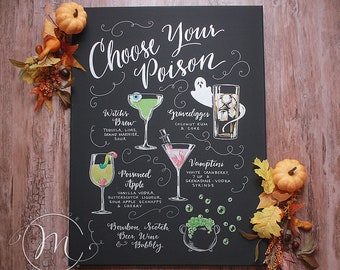 Choose Your
Poison
Witch's
Brew
Tequila, Lime,
Grand Marnier,
Sour
Gravedigger
Coconut Rum
& Coke
Poisoned
Apple
Vanilla Vodka,
Butterscotch Liqueur,
Sour Apple Schnapps
& Cherry
Vamptini
White Cranberry,
7 Up &
Grenadine-Vodka
Strings
Bourbon, Scotch,
Beer, Wine &
Bubbly
M